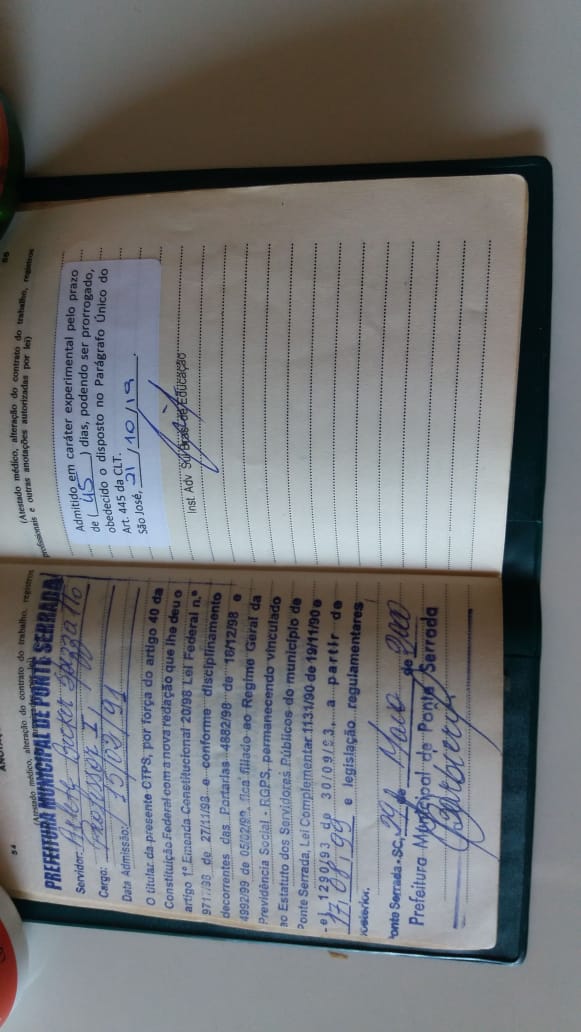 54
(Atestado médico, alteração do contrato do trabalho, registros
PREFEITURA MUNICIPAL DE PONTE SERRADA
Servidor:
Cargo: Professor I,
Data Admissão: 15/02/91
O titular da presente CTPS, por força do artigo 40 da
Constituição Federal com a nova redação que lhe deu o
artigo 1º Emenda Constitucional 20/98 Lei Federal n.º
9717/98 de 27/11/98 e conforme disciplinamento
decorrentes das Portarias 4882/98 de 16/12/98 e
4992/99 de 05/02/99, fica filiado ao Regime Geral da
Previdência Social - RGPS, permanecendo vinculado
ao Estatuto dos Servidores Públicos do município de
Ponte Serrada, Lei Complementar 1131/90 de 19/11/90 e
Lei 1290/93 de 30/09/93, a partir de
e legislação regulamentares
posterior.
Ponte Serrada - SC, 29 de Maio de 2000
Prefeitura Municipal de Ponte Serrada
55
(Atestado médico, alteração do contrato do trabalho, registros
profissionais e outras anotações autorizadas por lei)
Admitido em caráter experimental pelo prazo
de ( 45 ) dias, podendo ser prorrogado,
obedecido o disposto no Parágrafo Único do
Art. 445 da CLT.
São José, 21 / 10 / 19 .
Inst Adv Sul Bras de Educação